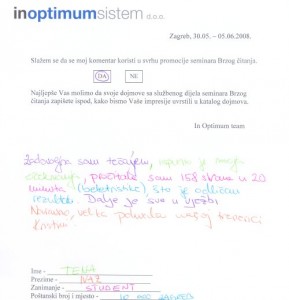 inoptimumsistem d.o.o.
Zagreb, 30.05. – 05.06.2008.
Slažem se da se moj komentar koristi u svrhu promocije seminara Brzog čitanja.
DA NE
Najljepše Vas molimo da svoje dojmove sa službenog dijela seminara Brzog
čitanja zapišete ispod, kako bismo Vaše impresije uvrstili u katalog dojmova.
In Optimum team
Zadovoljna sam tečajem, ispunio je moja
očekivanja, pročitala sam 158 strana u 20
minuta (beletristike), što je odličan
rezultat. Dalje je sve u vježbi
Naravno, velika pohvala našoj trenerici
Kristini
Ime - TENA
Prezime -
Zanimanje - STUDENT
Poštanski broj i mjesto - 10 000 ZAGREB